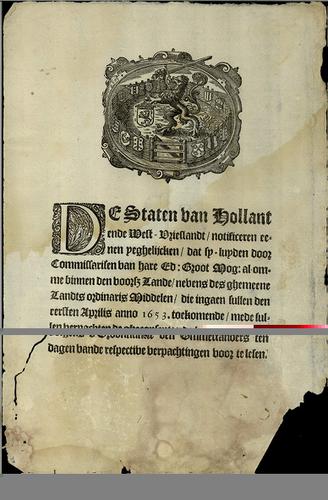 DE Staten van Hollant
ende West-Vrieslandt/ notificeren ee-
nen yeghelijcken/ dat sy-luyden door
Commissarisen van hare Ed: Groot Mog: al-om-
me binnen den voorsz Lande/ nevens des ghemeene
Landts ordinaris Middelen/ die ingaen sullen den
eersten Aprilis anno 1653. toekomende/ mede sul-
len verpachten de
Ommelanders ten
dagen vande respective verpachtingen voor te lesen.